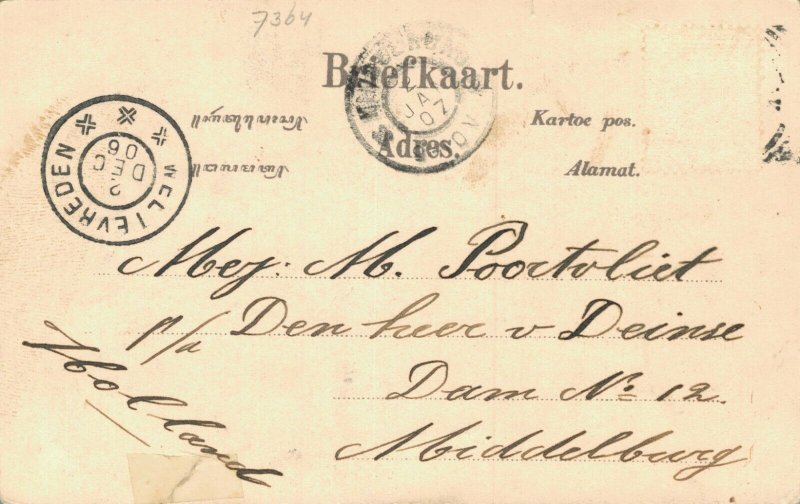 7364
Briefkaart.
Kartoe pos.
Adres.
Alamat.
WELTEVREDEN
DEC
06
JA
07
Mej: M. Poortvliet
p/a Den heer v Deinse
Dam No: 12.
Middelburg
Holland